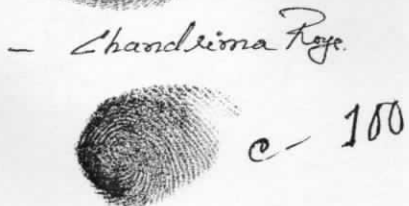 - Chandrima Roye.
c- 100